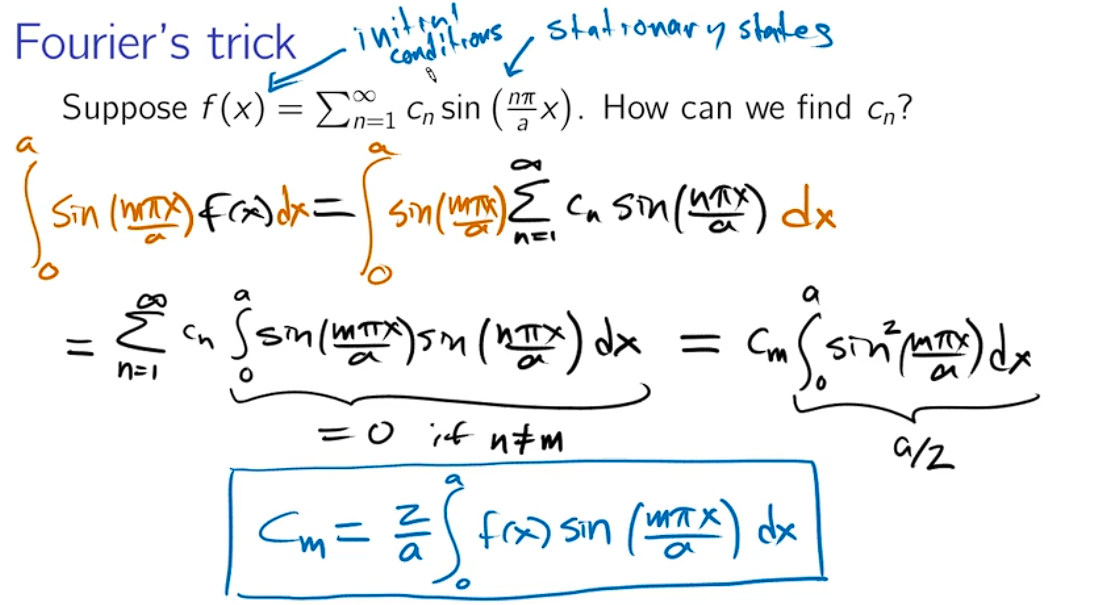 Fourier's trick
initial conditions
stationary states
Suppose f(x) = ∑_{n=1}^{∞} c_n sin (nπ/a x). How can we find c_n?
∫_0^a sin(mπx/a) f(x) dx = ∫_0^a sin(mπx/a) ∑_{n=1}^{∞} c_n sin(nπx/a) dx
= ∑_{n=1}^{∞} c_n ∫_0^a sin(mπx/a) sin(nπx/a) dx = c_m ∫_0^a sin²(mπx/a) dx
= 0 if n≠m
a/2
c_m = 2/a ∫_0^a f(x) sin(mπx/a) dx